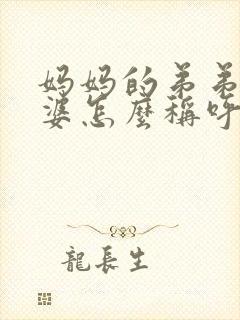 妈妈的弟弟
婆怎麼稱呼
龍長生